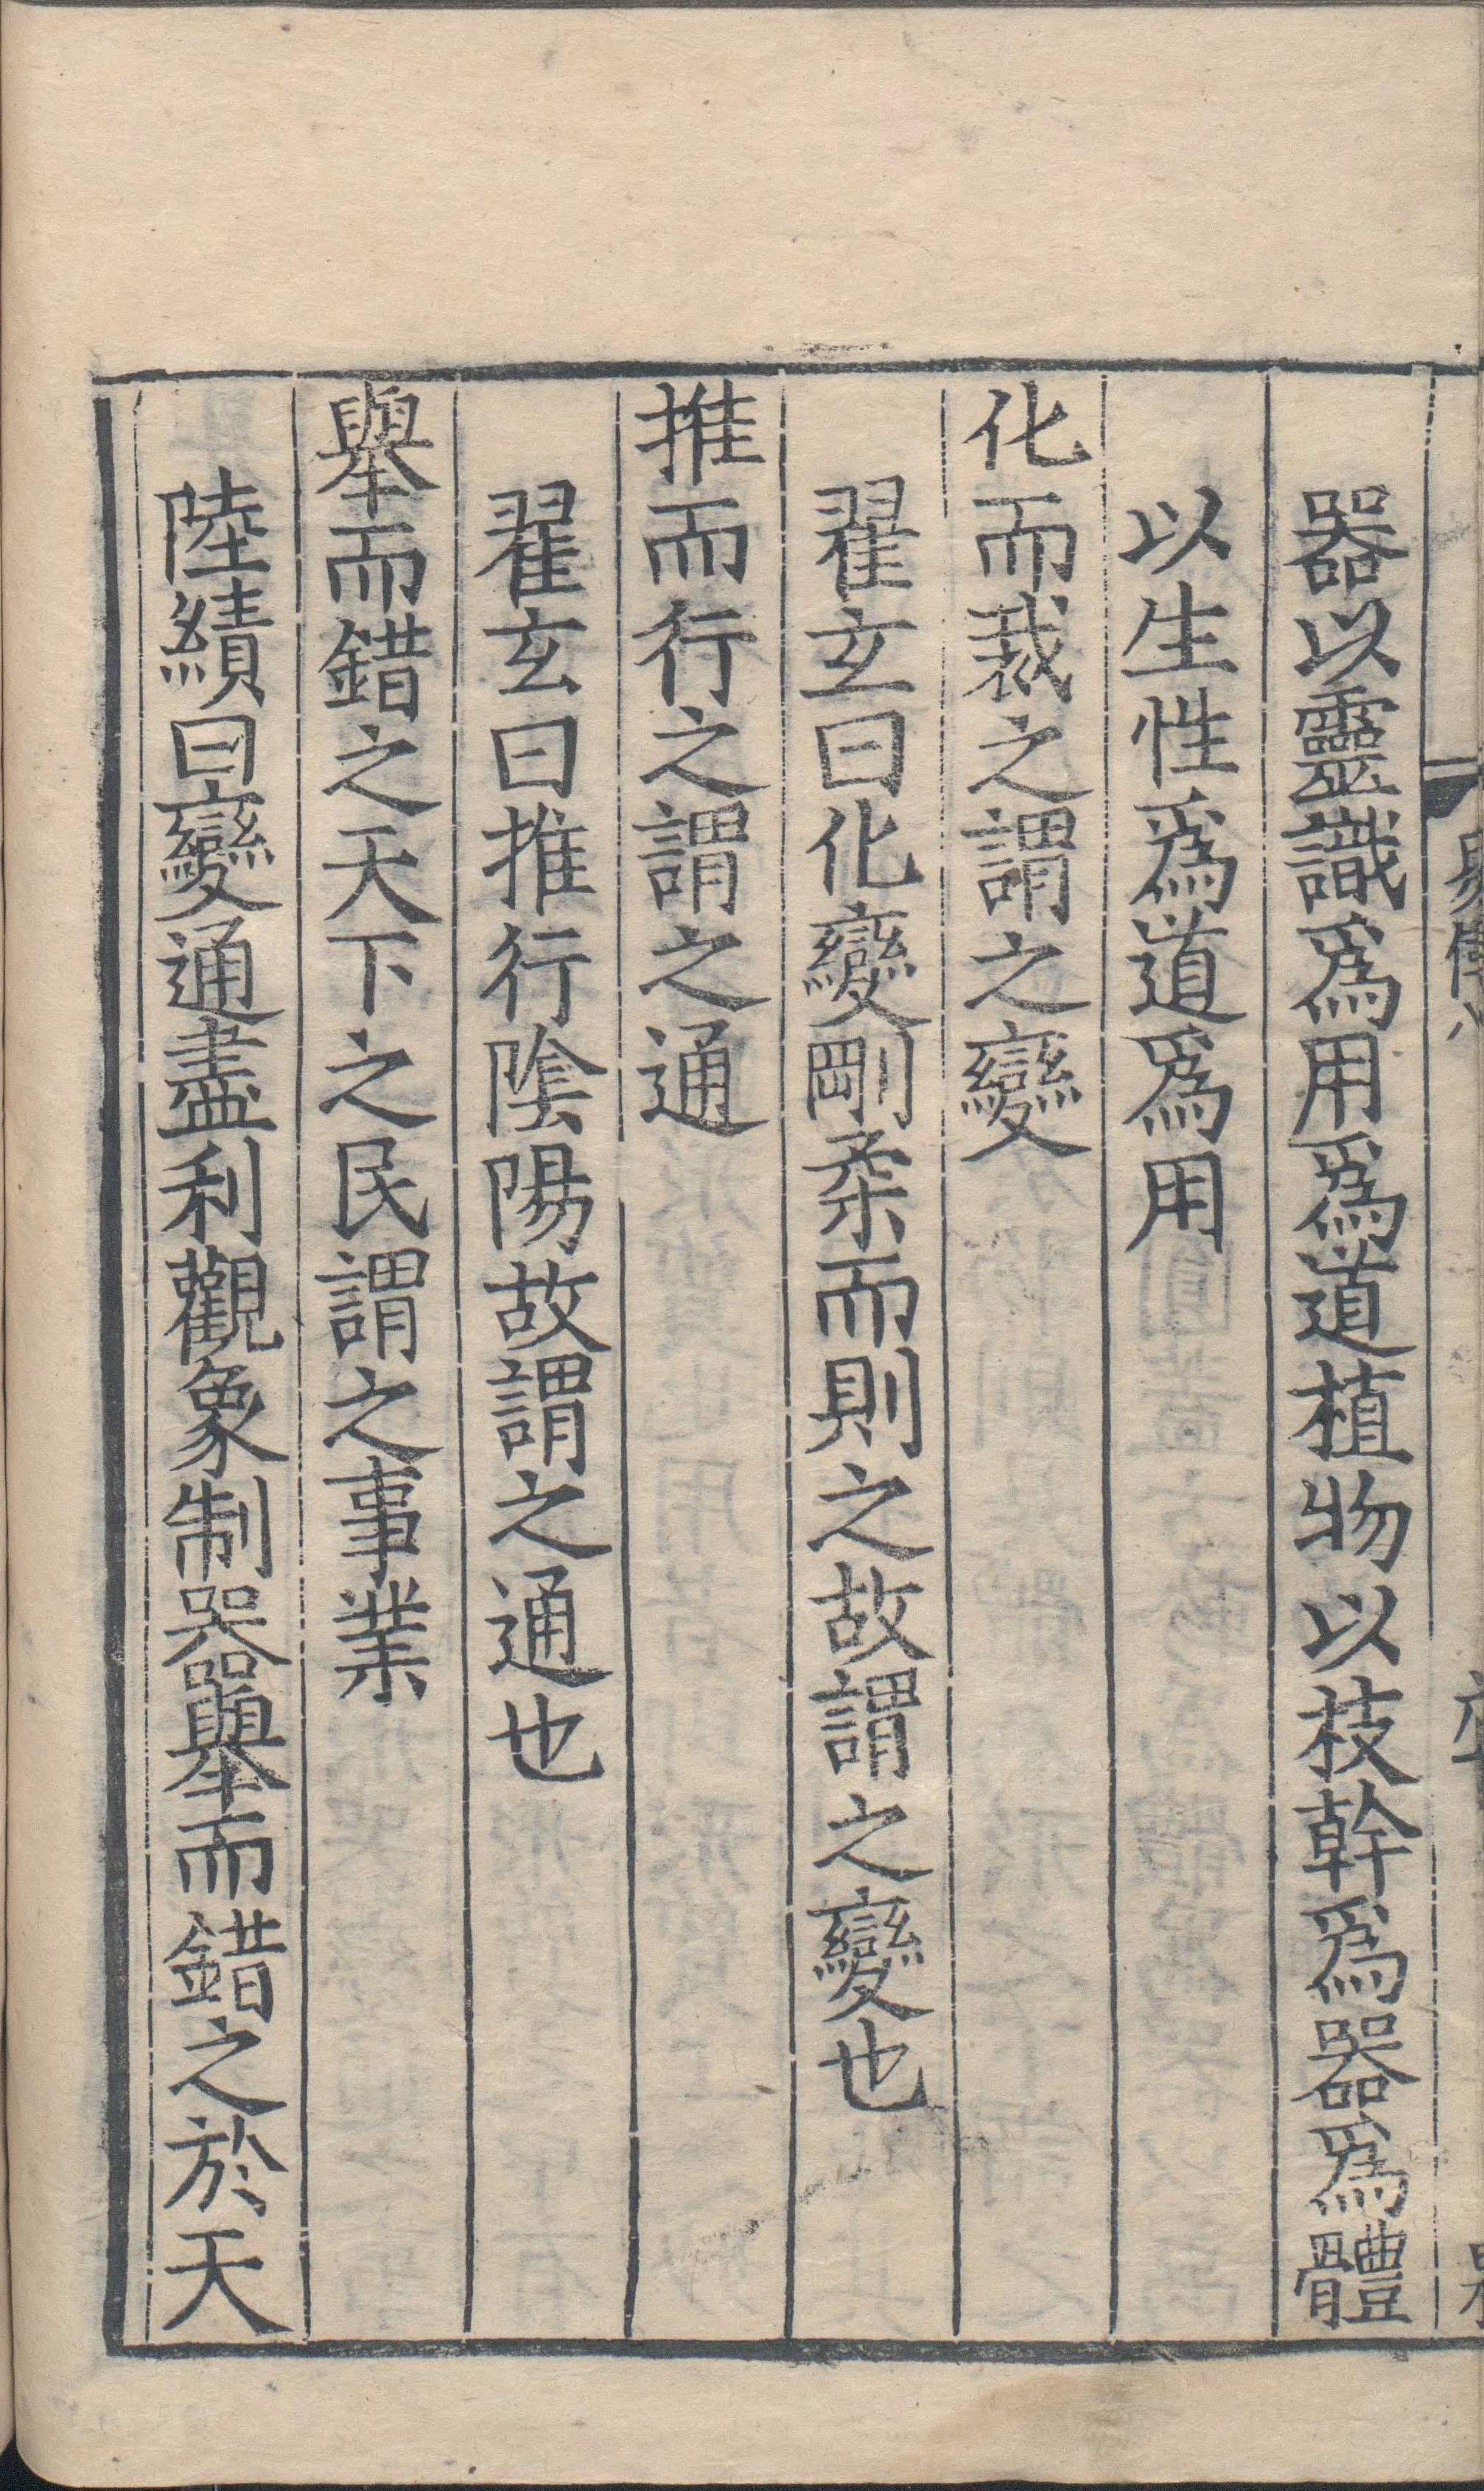 器以靈識爲用爲道植物以枝幹爲器爲體
以生性爲道爲用
化而裁之謂之變
翟玄曰化變剛柔而則之故謂之變也
推而行之謂之通
翟玄曰推行陰陽故謂之通也
舉而錯之天下之民謂之事業
陸績曰變通盡利觀象制器舉而錯之於天